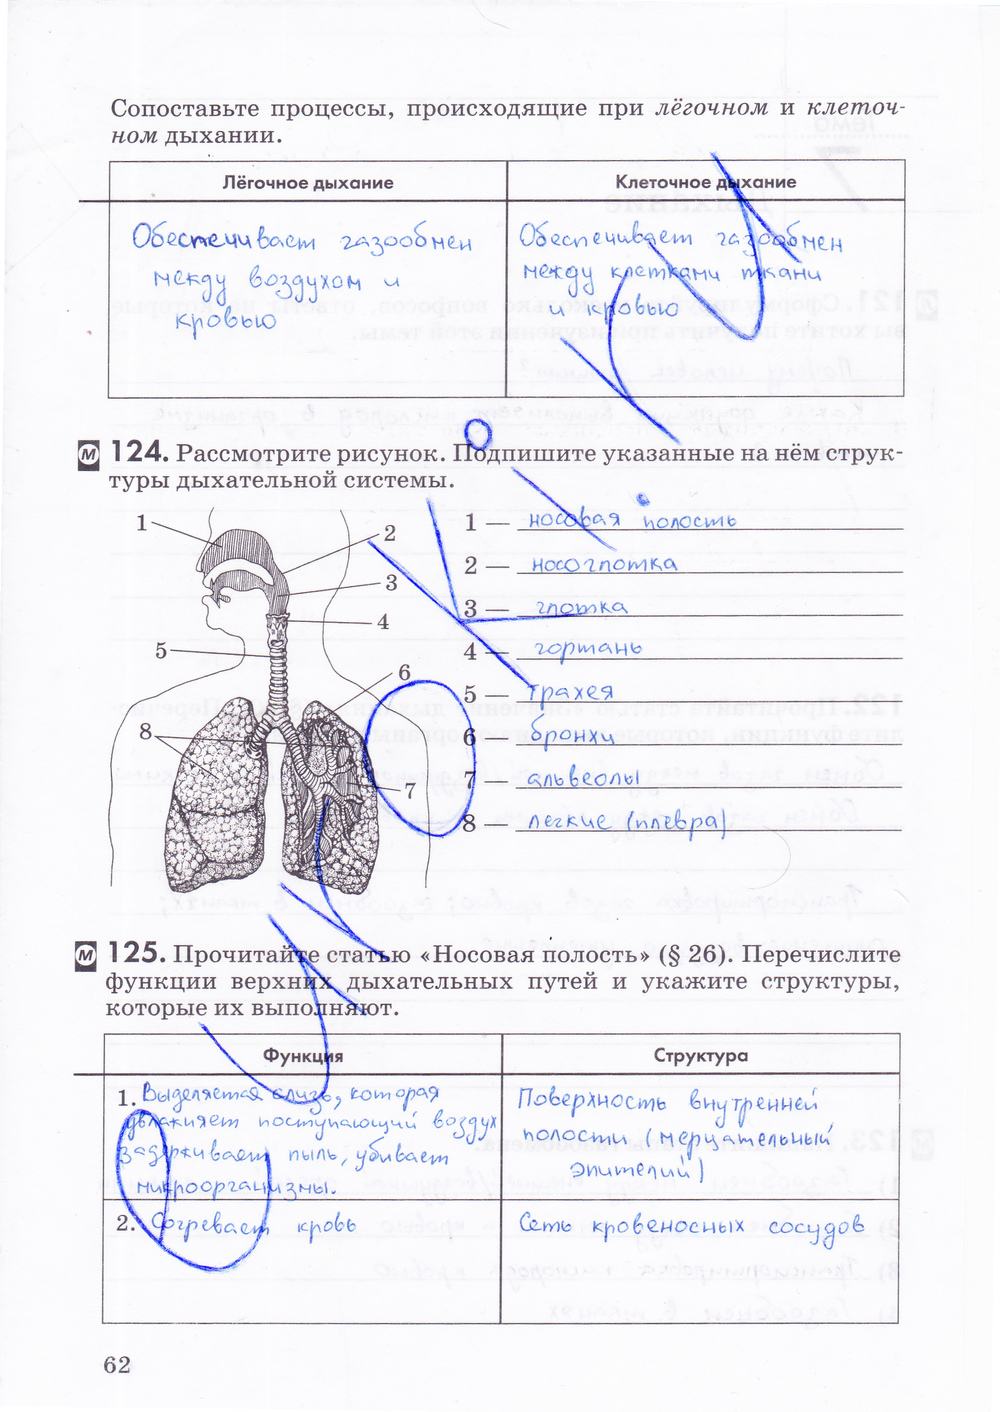 Сопоставьте процессы, происходящие при лёгочном и клеточ-
ном дыхании.
Лёгочное дыхание
Клеточное дыхание
Обеспечивает газообмен
между воздухом и
кровью
Обеспечивает газообмен
между клетками ткани
и кровью
М 124. Рассмотрите рисунок. Подпишите указанные на нём струк-
туры дыхательной системы.
1
2
3
4
5
6
8
7
1 — носовая полость
2 — носоглотка
3 — глотка
4 — гортань
5 — трахея
6 — бронхи
7 — альвеолы
8 — легкие (плевра)
М 125. Прочитайте статью «Носовая полость» (§ 26). Перечислите
функции верхних дыхательных путей и укажите структуры,
которые их выполняют.
Функция
Структура
1. Выделяется слизь, которая
увлажняет поступающий воздух
задерживает пыль, убивает
микроорганизмы.
Поверхность внутренней
полости (мерцательный
эпителий)
2. Согревает кровь
Сеть кровеносных сосудов
62